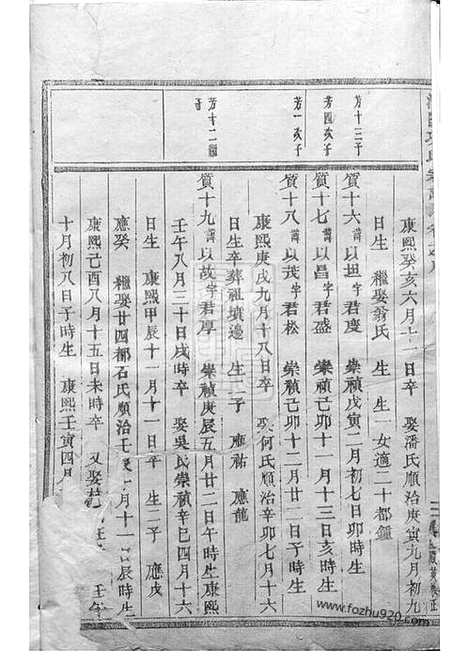 康熙癸亥六月十一日卒 娶潘氏順治庚寅九月初九
日生 継娶翁氏 生一女適二十都鍾
芳十三子
質十六諱以坦字君度 崇禎戊寅二月初七日卯時生
芳四次子
質十七諱以昌字君盛 崇禎己卯十一月十三日亥時生
芳一次子
質十八諱以茂字君松 崇禎己卯十二月廿二日子時生
康熙庚戌九月十八日卒 娶何氏順治辛卯七月十六
日生卒葬祖墳邊 生二子 應祐 應龍
芳十二繼子
質十九諱以故字君厚 崇禎庚辰五月廿二日午時生康熙
壬午八月三十日戌時卒 娶吳氏崇禎辛巳四月十六
日生 康熙甲辰十一月十一日卒 生二子 應戊
應癸 継娶廿四都石氏順治壬 月十一日辰時生
康熙己酉八月十五日未時卒 又娶 壬午
十月初八日子時生 康熙壬寅四月
www.fozhu920.com